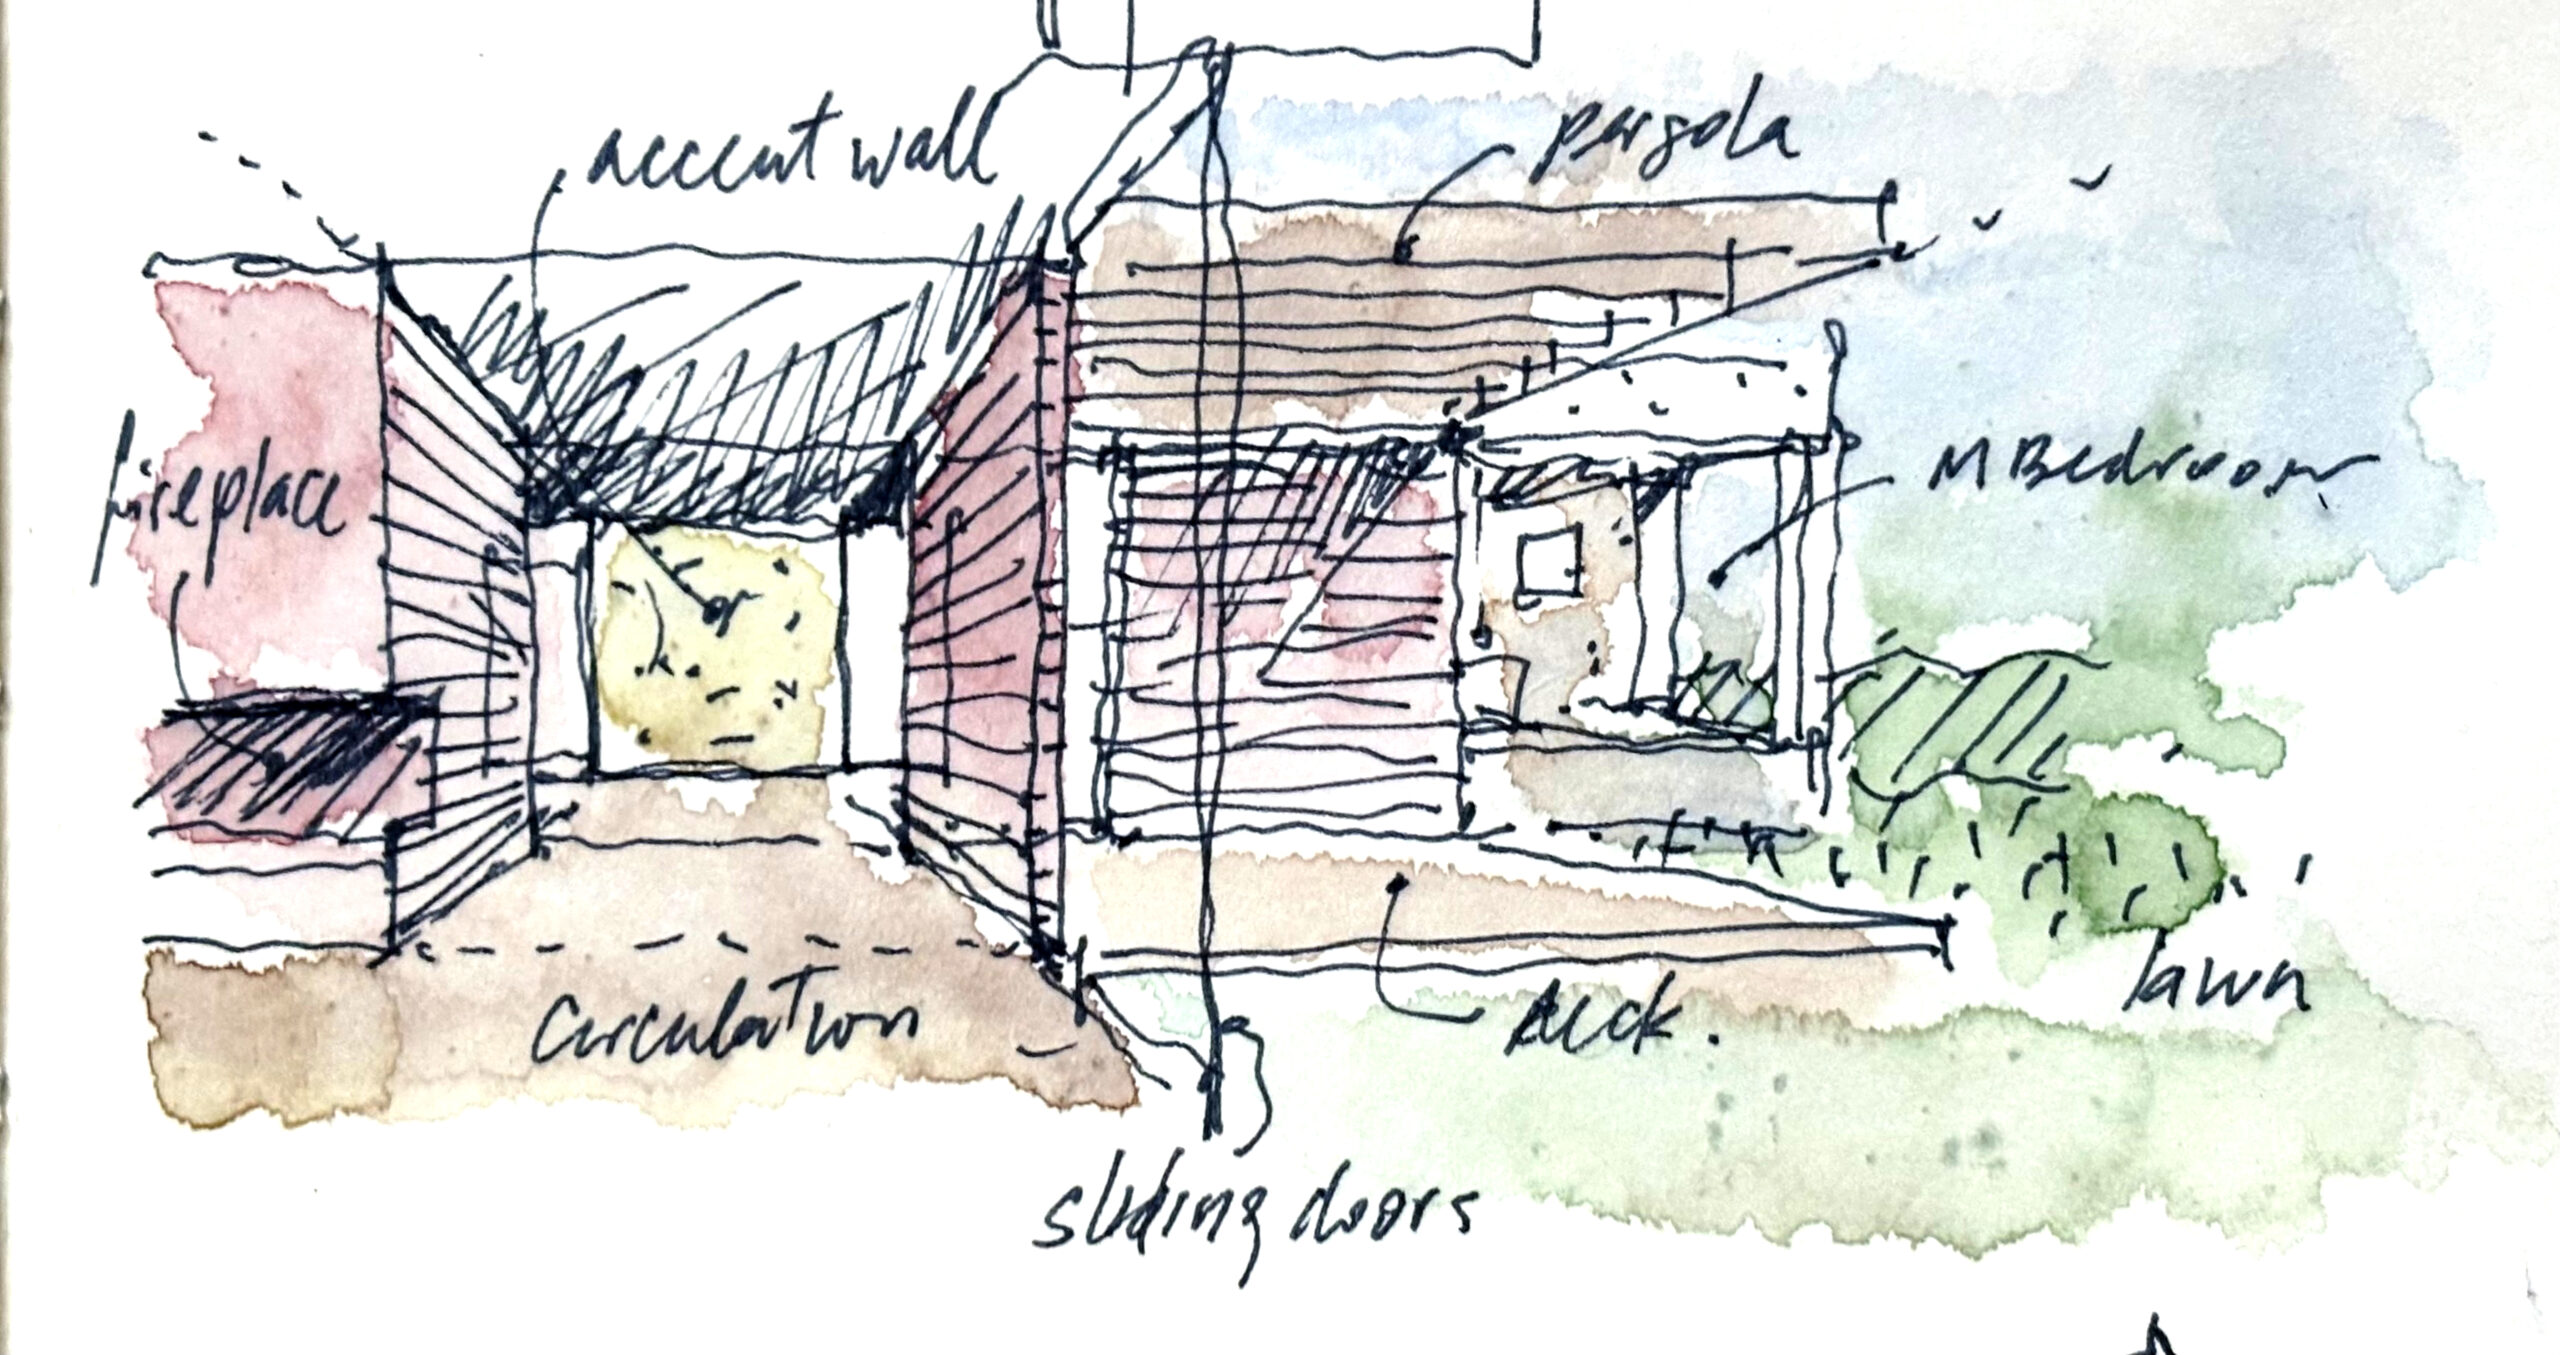 accent wall
pergola
fireplace
M Bedroom
circulation
deck.
lawn
sliding doors